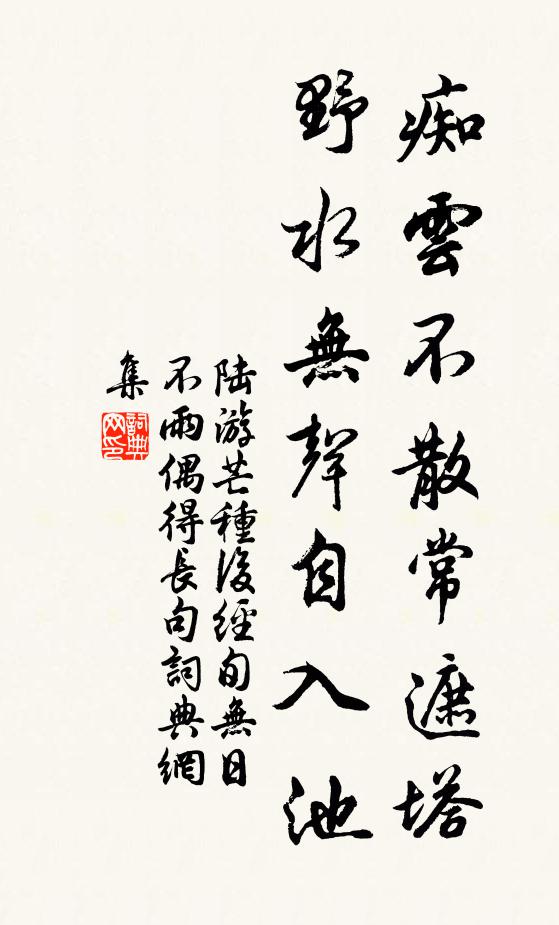 痴雲不散常遮塔
野水無聲自入池
陆游芒種後經旬無日
不雨偶得長句詞典網
集
詞典
网印